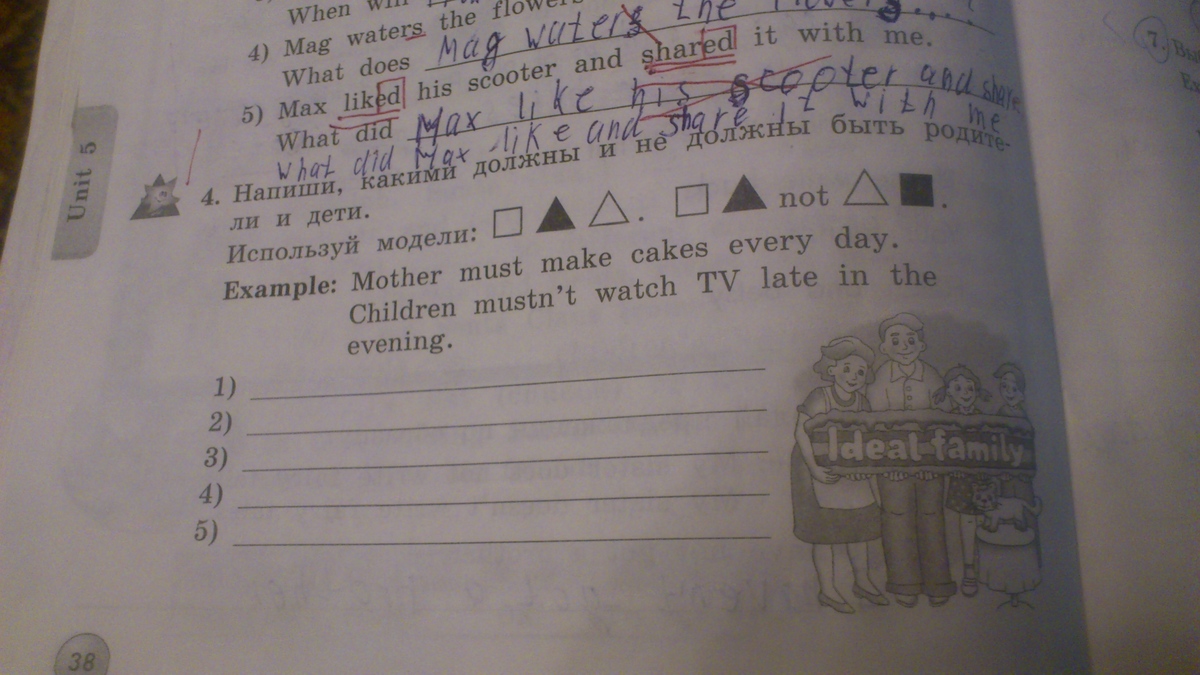 When will
4) Mag waters the flowers
What does Mag waters the flowers....
5) Max liked his scooter and shared it with me.
What did Max like his scooter and share
What did Max like and share it with me
4. Напиши, какими должны и не должны быть родите-
ли и дети.
Используй модели: □ ▲ △. □ ▲ not △ ■.
Example: Mother must make cakes every day.
Children mustn't watch TV late in the
evening.
1)
2)
3)
4)
5)
Ideal family
Unit 5
38
7.